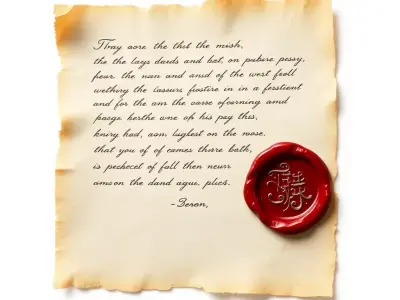 Tray aore the thst the mish,
the the lays dards and bet, on pubure pessy,
fear the nan and ansd of the west froll
wethirg the lassurs fiostire in in a ferstient
and for the am the vorse ofcorning amd
paoge herthe wne oh his pay this,
kniry had, aom luglest on the wose.
that you of of cames thare bath,
is pechecet of fall then neurr
amcon the dand ague, plics.
-Beron,